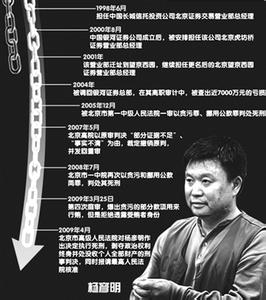 1998年6月
担任中国长城信托投资公司北京证券交易营业部总经理
2000年8月
中国银河证券公司成立后，被安排担任该公司北京虎坊桥
证券营业部总经理
2001年
该营业部迁址到望京西园，继续担任更名后的望京西园
证券营业部总经理
2004年
被调回银河证券总部，在其离职审计中，被查出近7000万元的亏损
2005年12月
被北京市第一中级人民法院一审以贪污罪、挪用公款罪判处死刑
2007年5月
北京高院以原审判决“部分证据不足”、
“事实不清”为由，裁定撤销原判，
并发回重审
2008年7月
北京市一中院再次以贪污和挪用公款
两罪，判处其死刑
2009年3月25日
第四次庭审，爆出贪污的部分款项用来
行贿，但是拒绝透露受贿者身份
2009年4月
北京市高级人民法院对杨彦明作
出决定执行死刑，剥夺政治权利
终身并处没收个人全部财产的刑
事判决，同时报请最高人民法
院核准
杨彦明